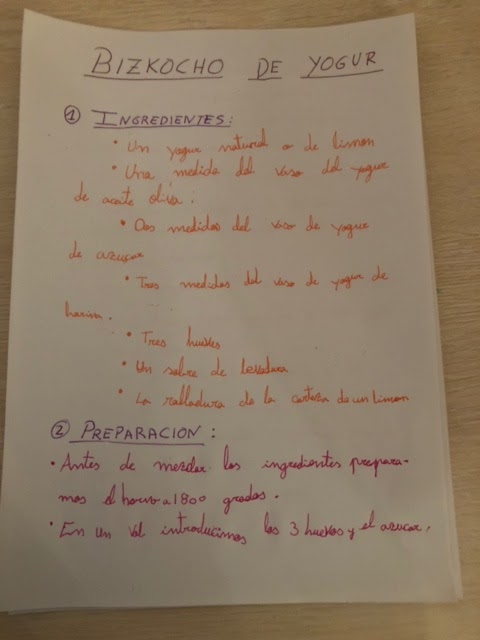 BIZKOCHO DE YOGUR
1 INGREDIENTES:
• Un yogur natural o de limon
• Una medida del vaso del yogur
de aceite oliva.
• Dos medidas del vaso de yogur
de azucar
• Tres medidas del vaso de yogur de
harina.
• Tres huevos
• Un sobre de levadura
• La ralladura de la corteza de un limon
2 PREPARACION:
• Antes de mezclar los ingredientes prepara-
mos el horno a 180º grados.
• En un vol introducimos los 3 huevos y el azucar,